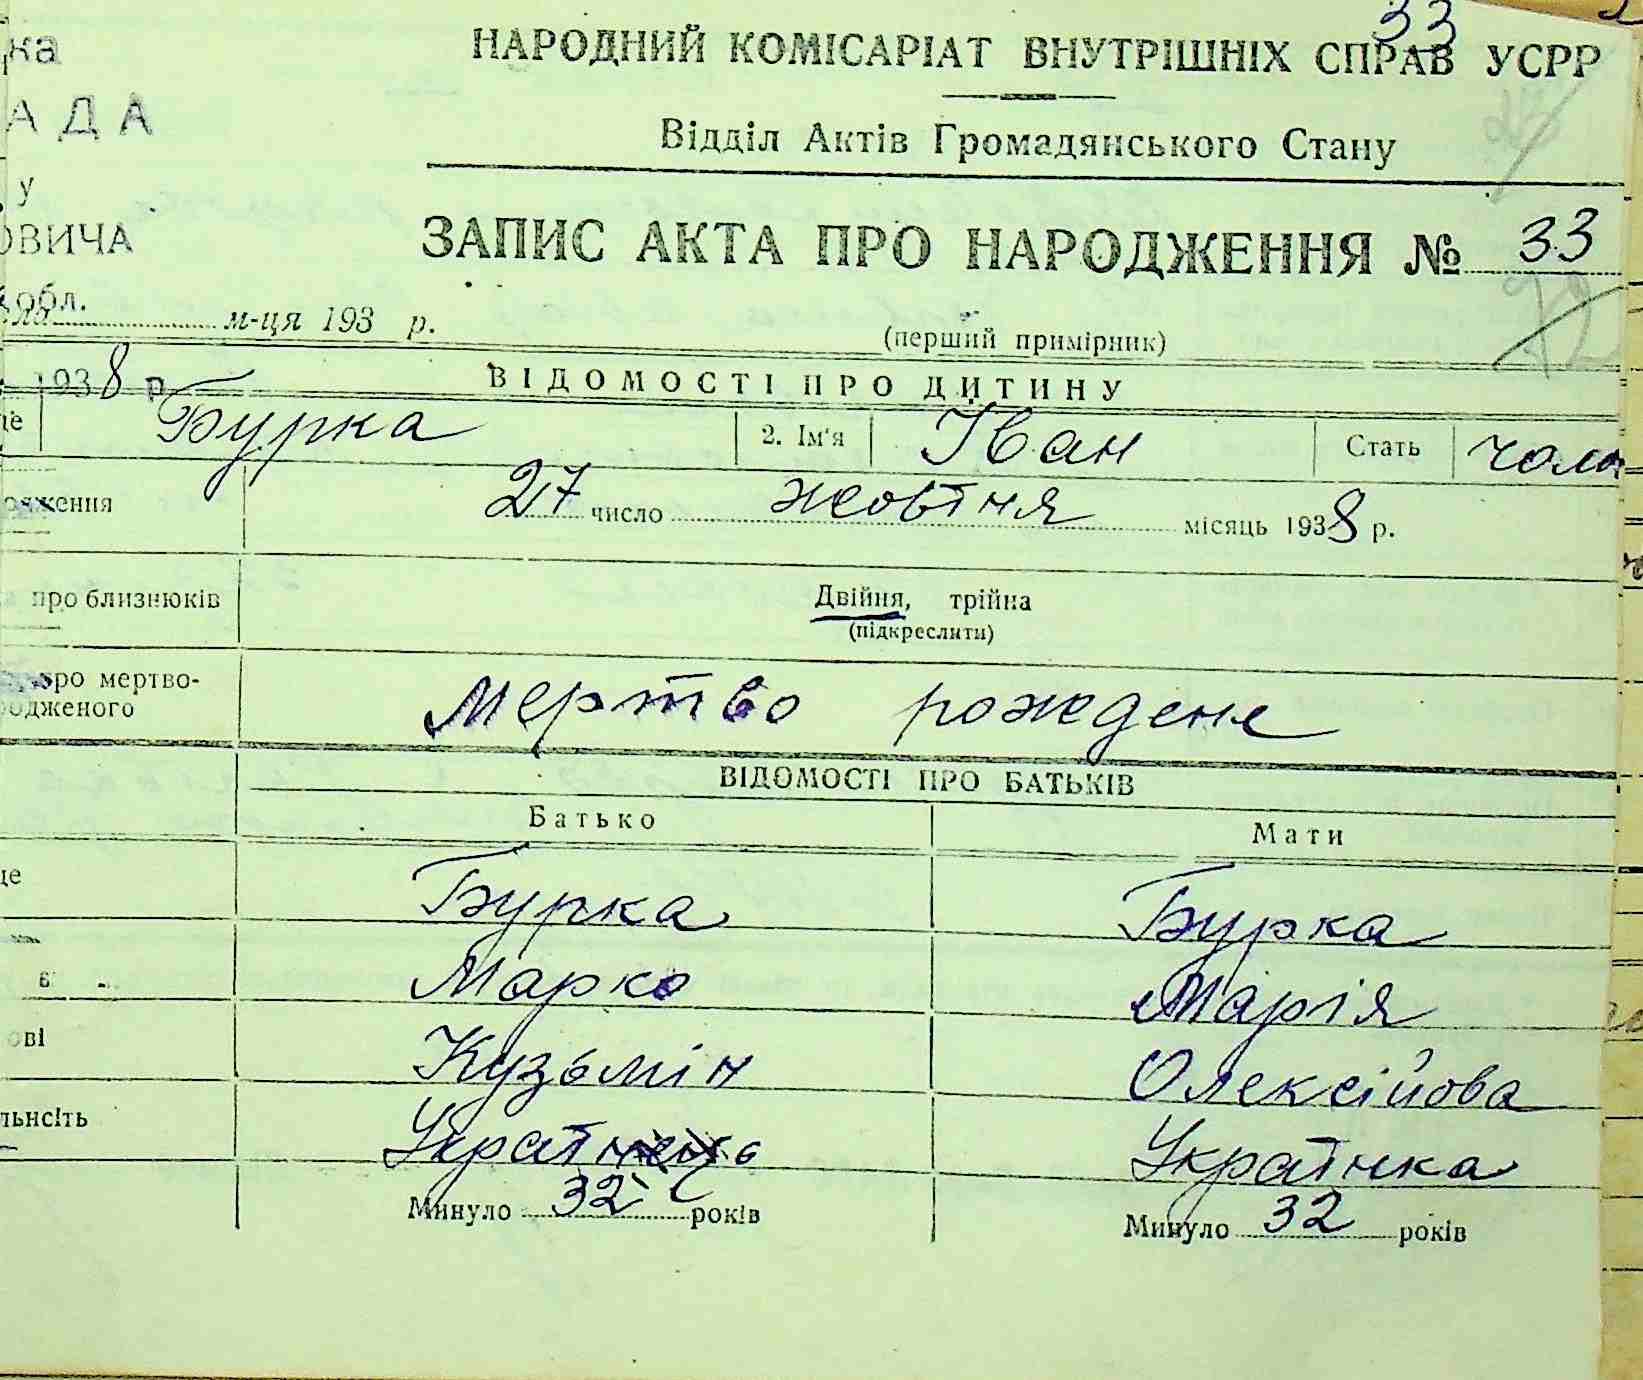 33
НАРОДНИЙ КОМІСАРІАТ ВНУТРІШНІХ СПРАВ УСРР
ка
АДА
Відділ Актів Громадянського Стану
у
ОВИЧА
ЗАПИС АКТА ПРО НАРОДЖЕННЯ № 33
обл.
м-ця 193 р.
(перший примірник)
72
1938 р.
ВІДОМОСТІ ПРО ДИТИНУ
це Бурка 2. Ім'я Іван Стать чолов
одження 27 число жовтня місяць 1938 р.
про близнюків Двійня, трійна
(підкреслити)
про мертво-
родженого Мертво рождене
ВІДОМОСТІ ПРО БАТЬКІВ
Батько Мати
це Бурка Бурка
Марко Марія
ові Кузьмін Олексійова
льнсіть Українець Українка
Минуло 32 років Минуло 32 років